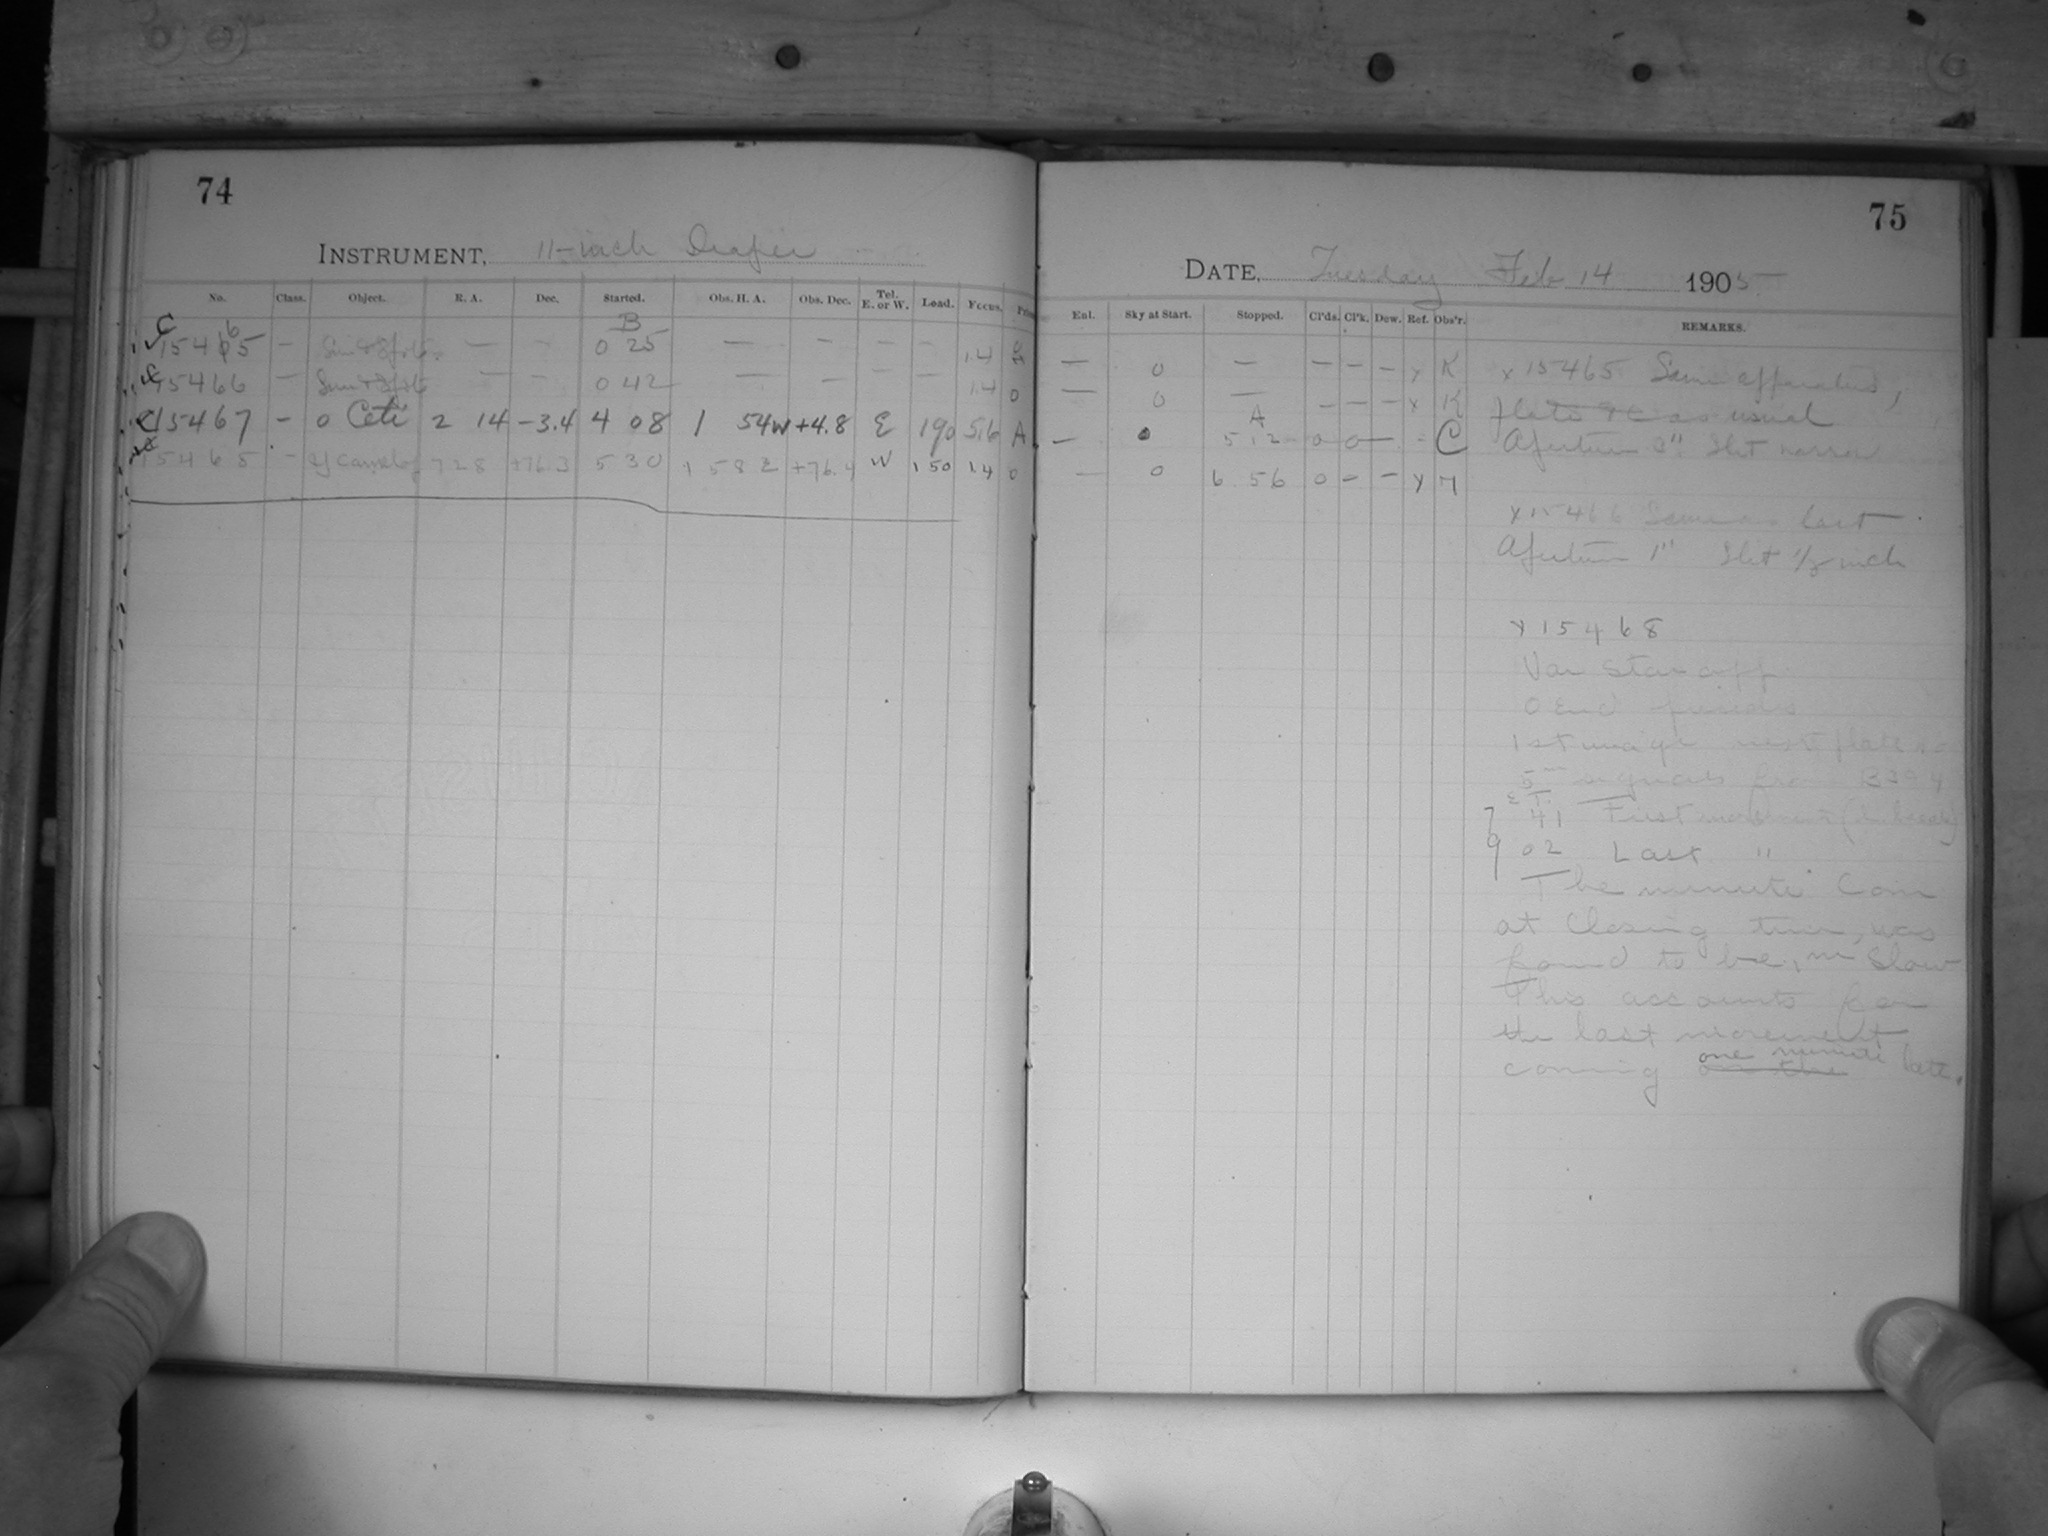 74
INSTRUMENT, 11-inch Draper
No. Class. Object. R. A. Dec. Started. Obs. H. A. Obs. Dec. Tel. E. or W. Load. Focus.
B
C 15465 — — — 0 25 — — — — 1.4
15466 — — — 0 42 — — — — 1.4 0
C15467 — o Ceti 2 14 -3.4 4 08 1 54w +4.8 E 190 5.6 A
1546 — 7 28 +76.3 5 30 1 58 +76.4 W 150 1.4 0
75
DATE, Tuesday Feb 14 1905
Enl. Sky at Start. Stopped. Cl'ds. Cl'k. Dew. Ref. Obs'r. REMARKS.
— 0 — — — — x K x 15465 Same apparatus,
— 0 — — — — x K plate &c as usual
A
— 0 5 12 0 0 — - C Aperture 3" Slit narrow
— 0 6 56 0 — — x
x 15466 Same as last
Aperture 1" Slit 1/8 inch
x 15468
Var Star app
0 End
1st image plate
5m signals from B
7 41 First movement
9 02 Last "
The minute Com
at Closing time, was
found to be 1m Slow
This accounts for
the last movement
coming one minute late.